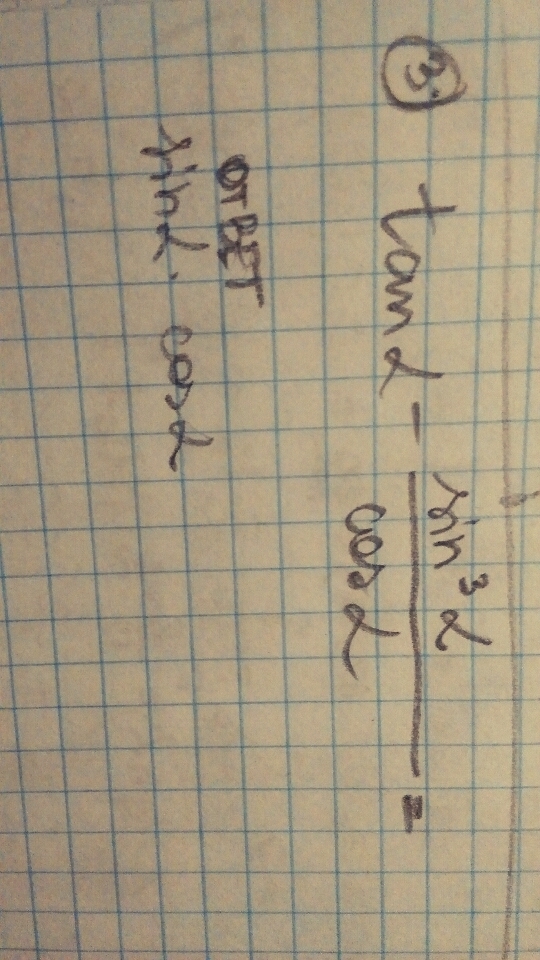 ③ tan α - sin³ α / cos α =
ответ
sin α · cos α